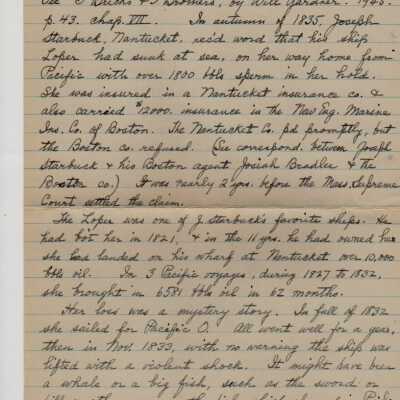 See "3 Bricks & 3 Brothers, by Will Gardner. 1945.
p. 43. chap. VII. In autumn of 1835, Joseph
Starbuck, Nantucket, rec'd word that his ship
Loper had sunk at sea, on her way home from
Pacific with over 1800 bbls sperm in her hold.
She was insured in a Nantucket insurance co. &
also carried $12000. insurance in the New Eng. Marine
Ins. Co. of Boston. The Nantucket Co. pd promptly, but
the Boston co. refused. (See correspond. between Joseph
Starbuck & his Boston agent Josiah Bradlee & the
Boston co.) It was nearly 2 yrs. before the Mass. Supreme
Court settled the claim.
The Loper was one of J. Starbuck's favorite ships. He
had bot her in 1821, & in the 11 yrs. he had owned her
she had landed on his wharf at Nantucket over 10,000
bbls oil. In 3 Pacific voyages, during 1827 to 1832,
she brought in 6581 bbls oil in 62 months.
Her loss was a mystery story. In fall of 1832
she sailed for Pacific O. All went well for a year,
then in Nov. 1833, with no warning the ship was
lifted with a violent shock. It might have been
a whale or a big fish, such as the sword or